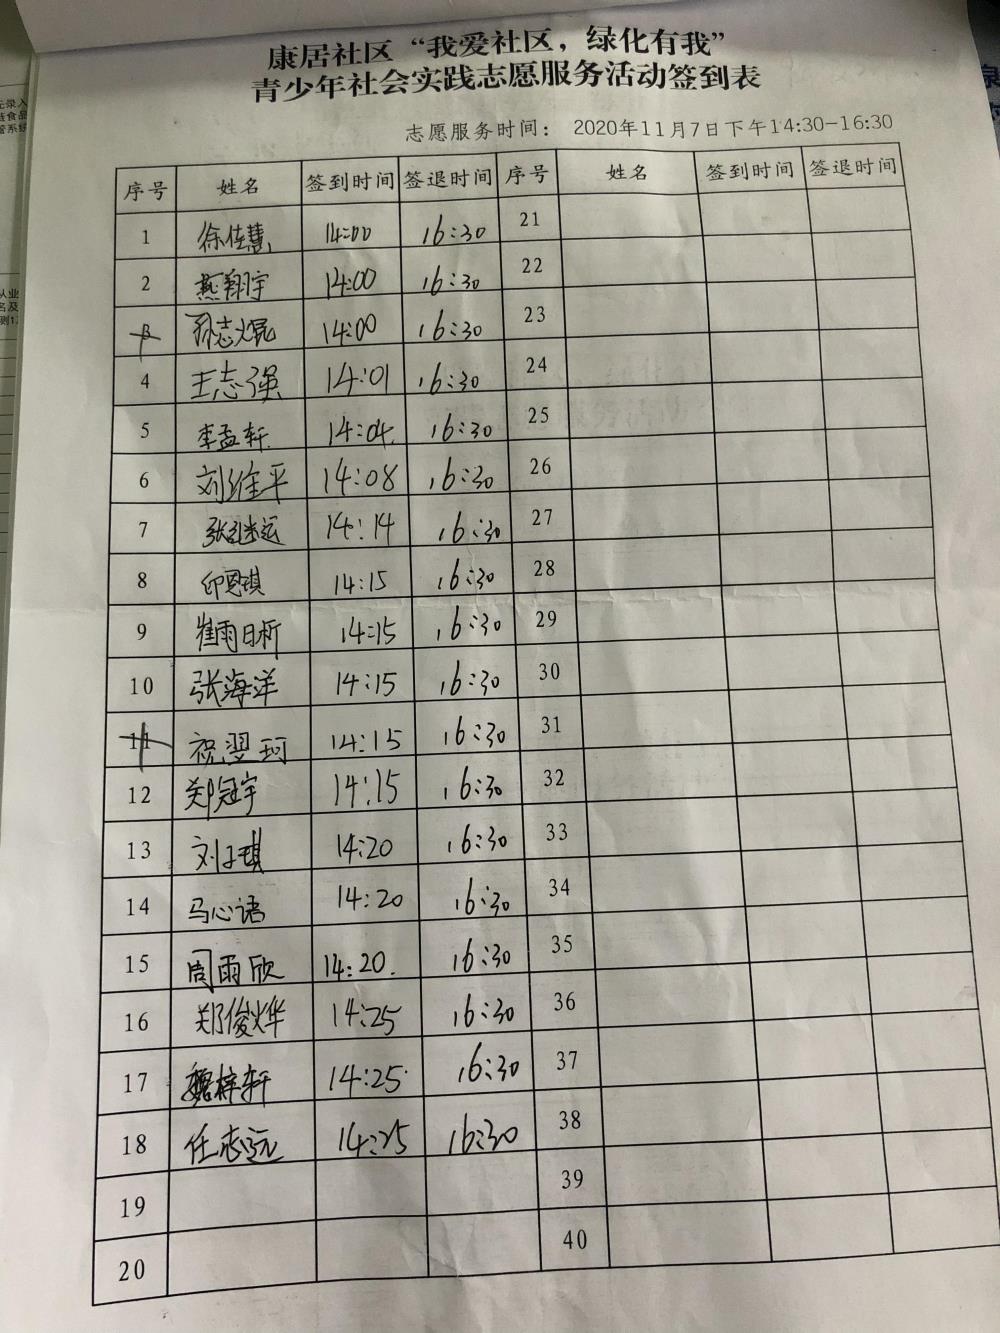 康居社区“我爱社区，绿化有我”
青少年社会实践志愿服务活动签到表
志愿服务时间： 2020年11月7日下午14:30-16:30
序号 姓名 签到时间 签退时间 序号 姓名 签到时间 签退时间
1 徐佳慧 14:00 16:30 21
2 燕翔宇 14:00 16:30 22
3 孙志焜 14:00 16:30 23
4 王志强 14:01 16:30 24
5 李孟轩 14:04. 16:30 25
6 刘维平 14:08 16:30 26
7 张 运 14:14 16:30 27
8 印恩琪 14:15 16:30 28
9 崔雨昕 14:15 16:30 29
10 张海洋 14:15 16:30 30
11 祝翌珂 14:15 16:30 31
12 郑冠宇 14:15 16:30 32
13 刘子琪 14:20 16:30 33
14 马心语 14:20 16:30 34
15 周雨欣 14:20. 16:30 35
16 郑俊烨 14:25 16:30 36
17 魏梓轩 14:25 16:30 37
18 任志远 14:25 16:30 38
19 39
20 40